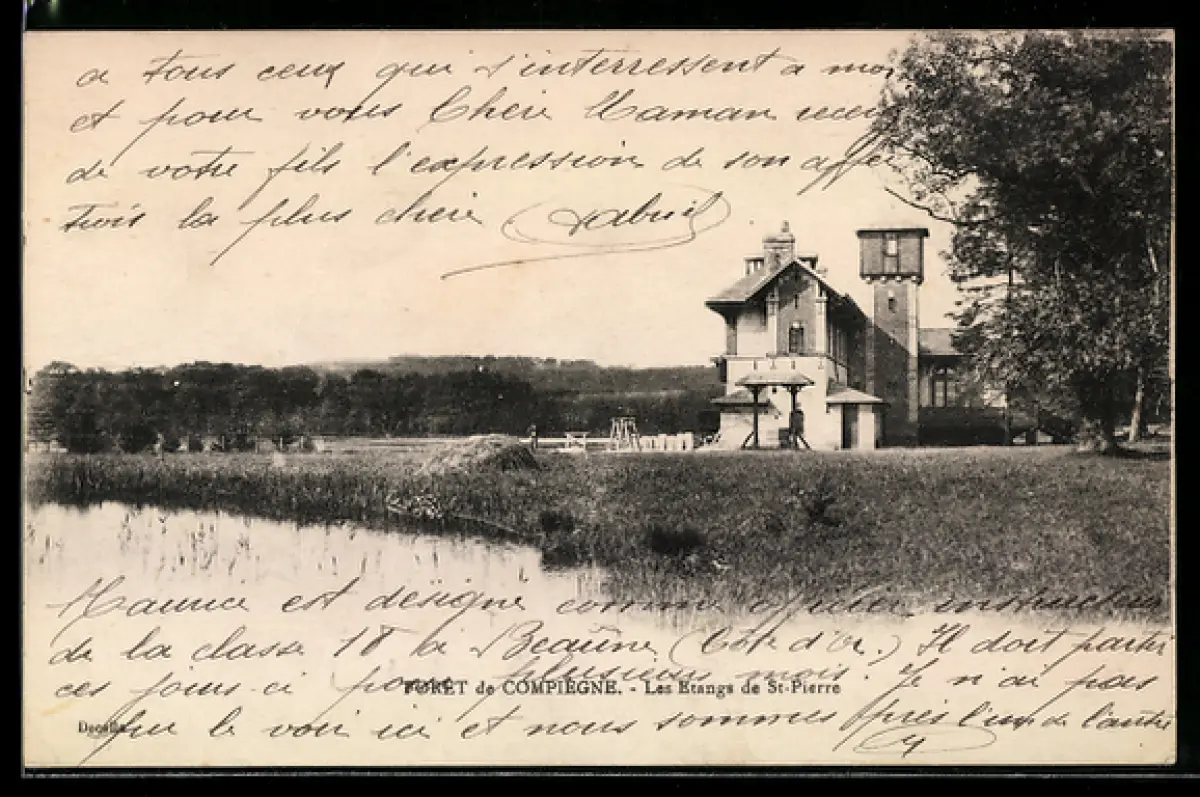 a tous ceux qui s'interressent a moi
et pour vous Chère Maman recev
de votre fils l'expression de son affec
trois la plus chère
Maurice est désigné comme officier instructeur
de la classe 18 à Beaune (Côte d'or.) Il doit partir
ces jours-ci pour plusieurs mois. Je n'ai pas
FORÊT de COMPIÈGNE. - Les Etangs de St-Pierre
pu le voir ici et nous sommes près l'un de l'autre